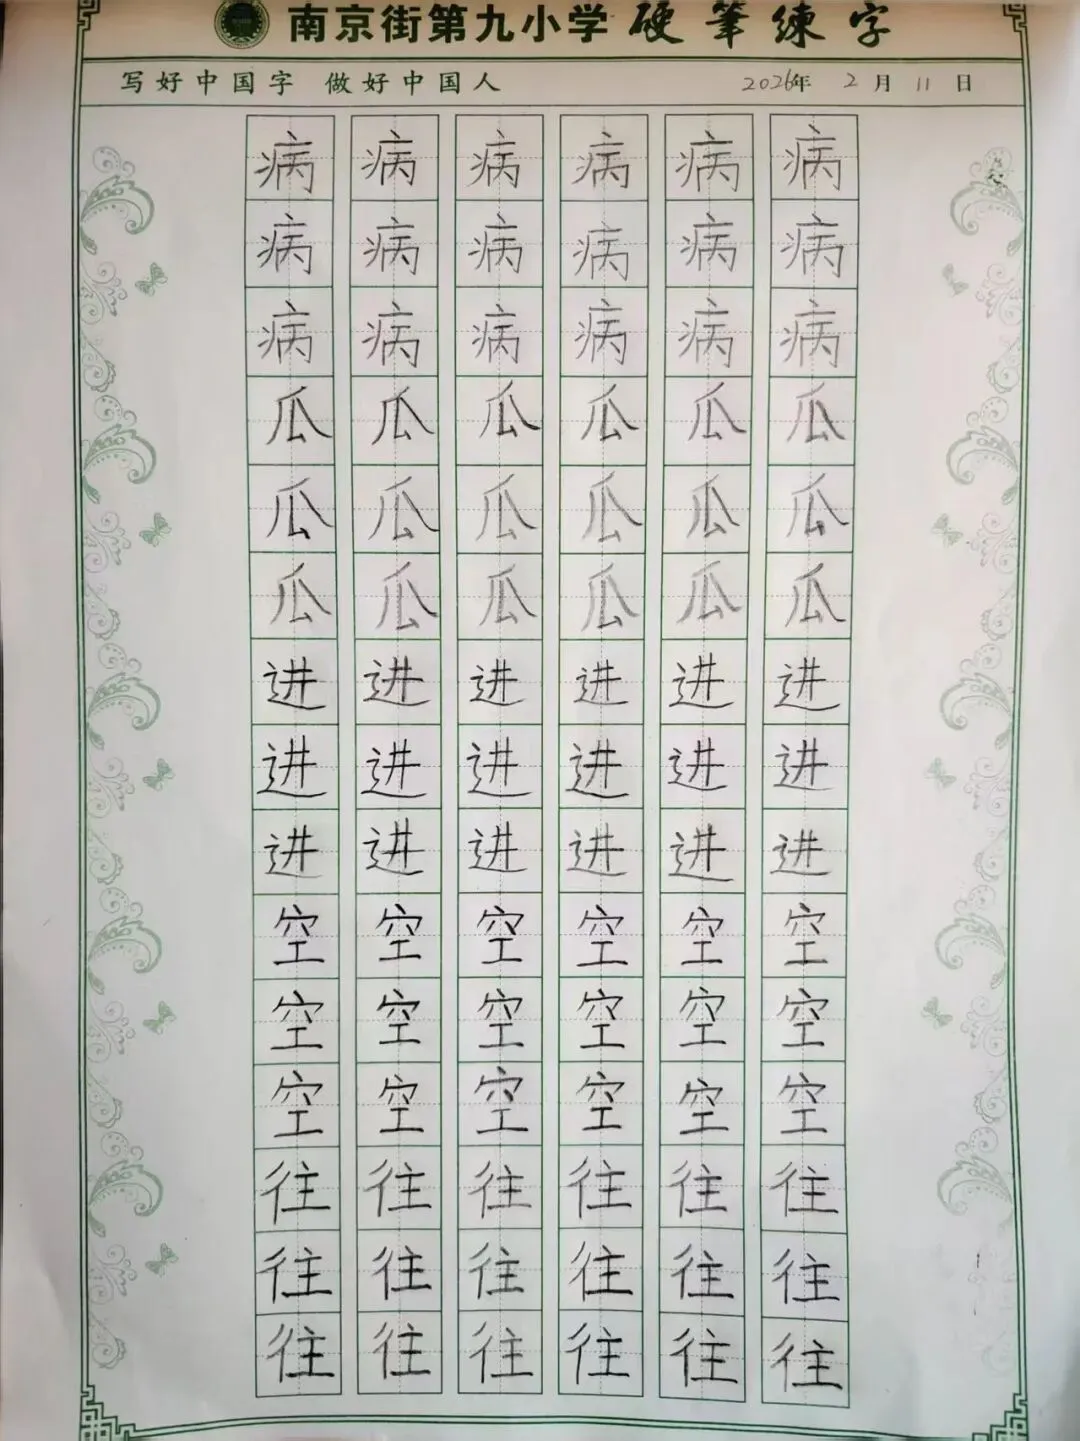 南京街第九小学 硬筆練字
写好中国字 做好中国人 2026年 2月 11日
病病病病病病
病病病病病病
病病病病病病
瓜瓜瓜瓜瓜瓜
瓜瓜瓜瓜瓜瓜
瓜瓜瓜瓜瓜瓜
进进进进进进
进进进进进进
进进进进进进
空空空空空空
空空空空空空
空空空空空空
往往往往往往
往往往往往往
往往往往往往